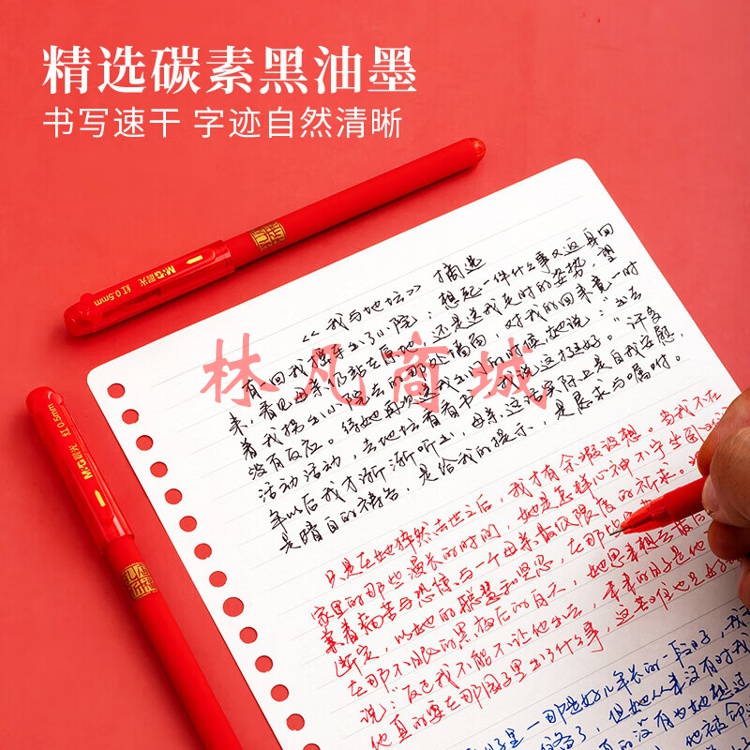 精选碳素黑油墨
书写速干 字迹自然清晰
M&G晨光 红0.5mm
M&G晨光 红0.5mm
林凡商城
《我与地坛》摘选
有一回我摇车出了小院；想起一件什么事又返身回
来，看见母亲仍站在原地，还是送我走时的姿势，望
着我拐出小院去的那处墙角，对我的回来竟一时
没有反应。待她再次送我出门的时候，她说："出去
活动活动，去地坛看看书，我说这挺好。"许多
年以后我才渐渐听出，母亲这话实际上是自我安慰，
是暗自的祷告，是给我的提示，是恳求与嘱咐。
只是在她猝然去世之后，我才有余暇设想。当我不在
家里的那些漫长的时间，她是怎样心神不宁坐
兼着痛苦与惊恐与一个母亲最低限度的祈求。
断定，以她的聪慧和坚忍，在那些
在那不眠的黑夜后的白天，她思来想去最后
说："反正我不能不让他出去，未来的日子是他
他真的要在那园子里出了什么事，这苦难也
那是好几年长的一段日子，我
但她从来没有对我